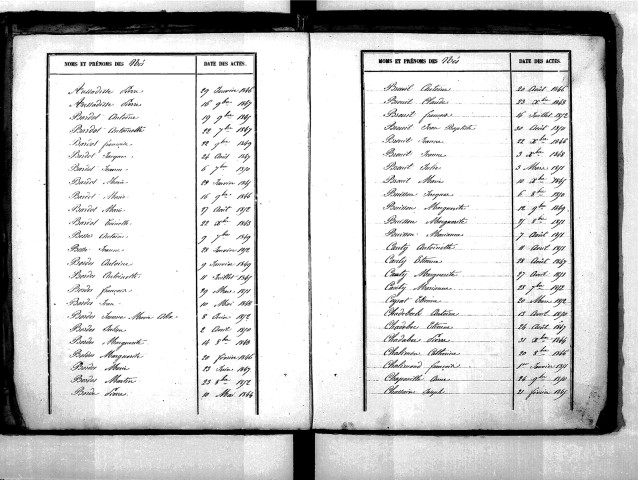 NOMS ET PRÉNOMS DES Nés DATE DES ACTES.
Aussadisse Pierre 29 Janvier 1866
Aussadisse Pierre 16 9bre 1867
Bardot Antoine 19 9bre 1867
Bardot Antoinette 22 7bre 1867
Bardot françois 22 9bre 1869
Bardot Jacques 24 Août 1867
Bardot Jeanne 6 7bre 1870
Bardot Marie 29 Janvier 1867
Bardot Marie 16 9bre 1866
Bardot Marie 27 Août 1872
Bardot 22 Xbre 1863
Besse Antoine 9 7bre 1869
Besse Jeanne 28 Janvier 1872
Bordes Antoine Janvier 1869
Bordes Antoinette 11 Juillet 1867
Bordes françois 29 Mars 1871
Bordes Jean 10 Mai 1868
Bordes Jeanne Marie 8 Juin 1872
Bordes 2 Août 1870
Bordes Marguerite 14 8bre 1860
Bordes Marguerite 20 février 1866
Bordes Marie 23 Juin 1867
Bordes Martin 23 8bre 1872
Borie Pierre 10 Mai 1864
NOMS ET PRÉNOMS DES Nés DATE DES ACTES.
Breuil Antoine 20 Août 1866
Breuil Claude 23 Xbre 1868
Breuil françois 16 Juillet 1872
Breuil Jean Baptiste 30 Août 1870
Breuil Jeanne 22 Xbre 1866
Breuil Jeanne 3 Xbre 1868
Breuil Julie 3 Mars 1871
Breuil Marie 10 Xbre 1867
Buisson Jacques 6 8bre 1870
Buisson Marguerite 12 9bre 1869
Buisson Marguerite 27 8bre 1871
Buisson Marianne 7 Août 1871
Canty Antoinette 11 Août 1871
Canty Etienne 28 Août 1867
Canty Marguerite 27 Août 1871
Canty Marianne 28 7bre 1872
Etienne 20 Mars 1872
Antoine 18 Août 1870
Chadabec Etienne 24 Août 1867
Chadabec Pierre 31 Xbre 1864
Catherine 20 8bre 1866
françois 1er Janvier 1871
Chapoville Anne 24 9bre 1870
Joseph 21 février 1867